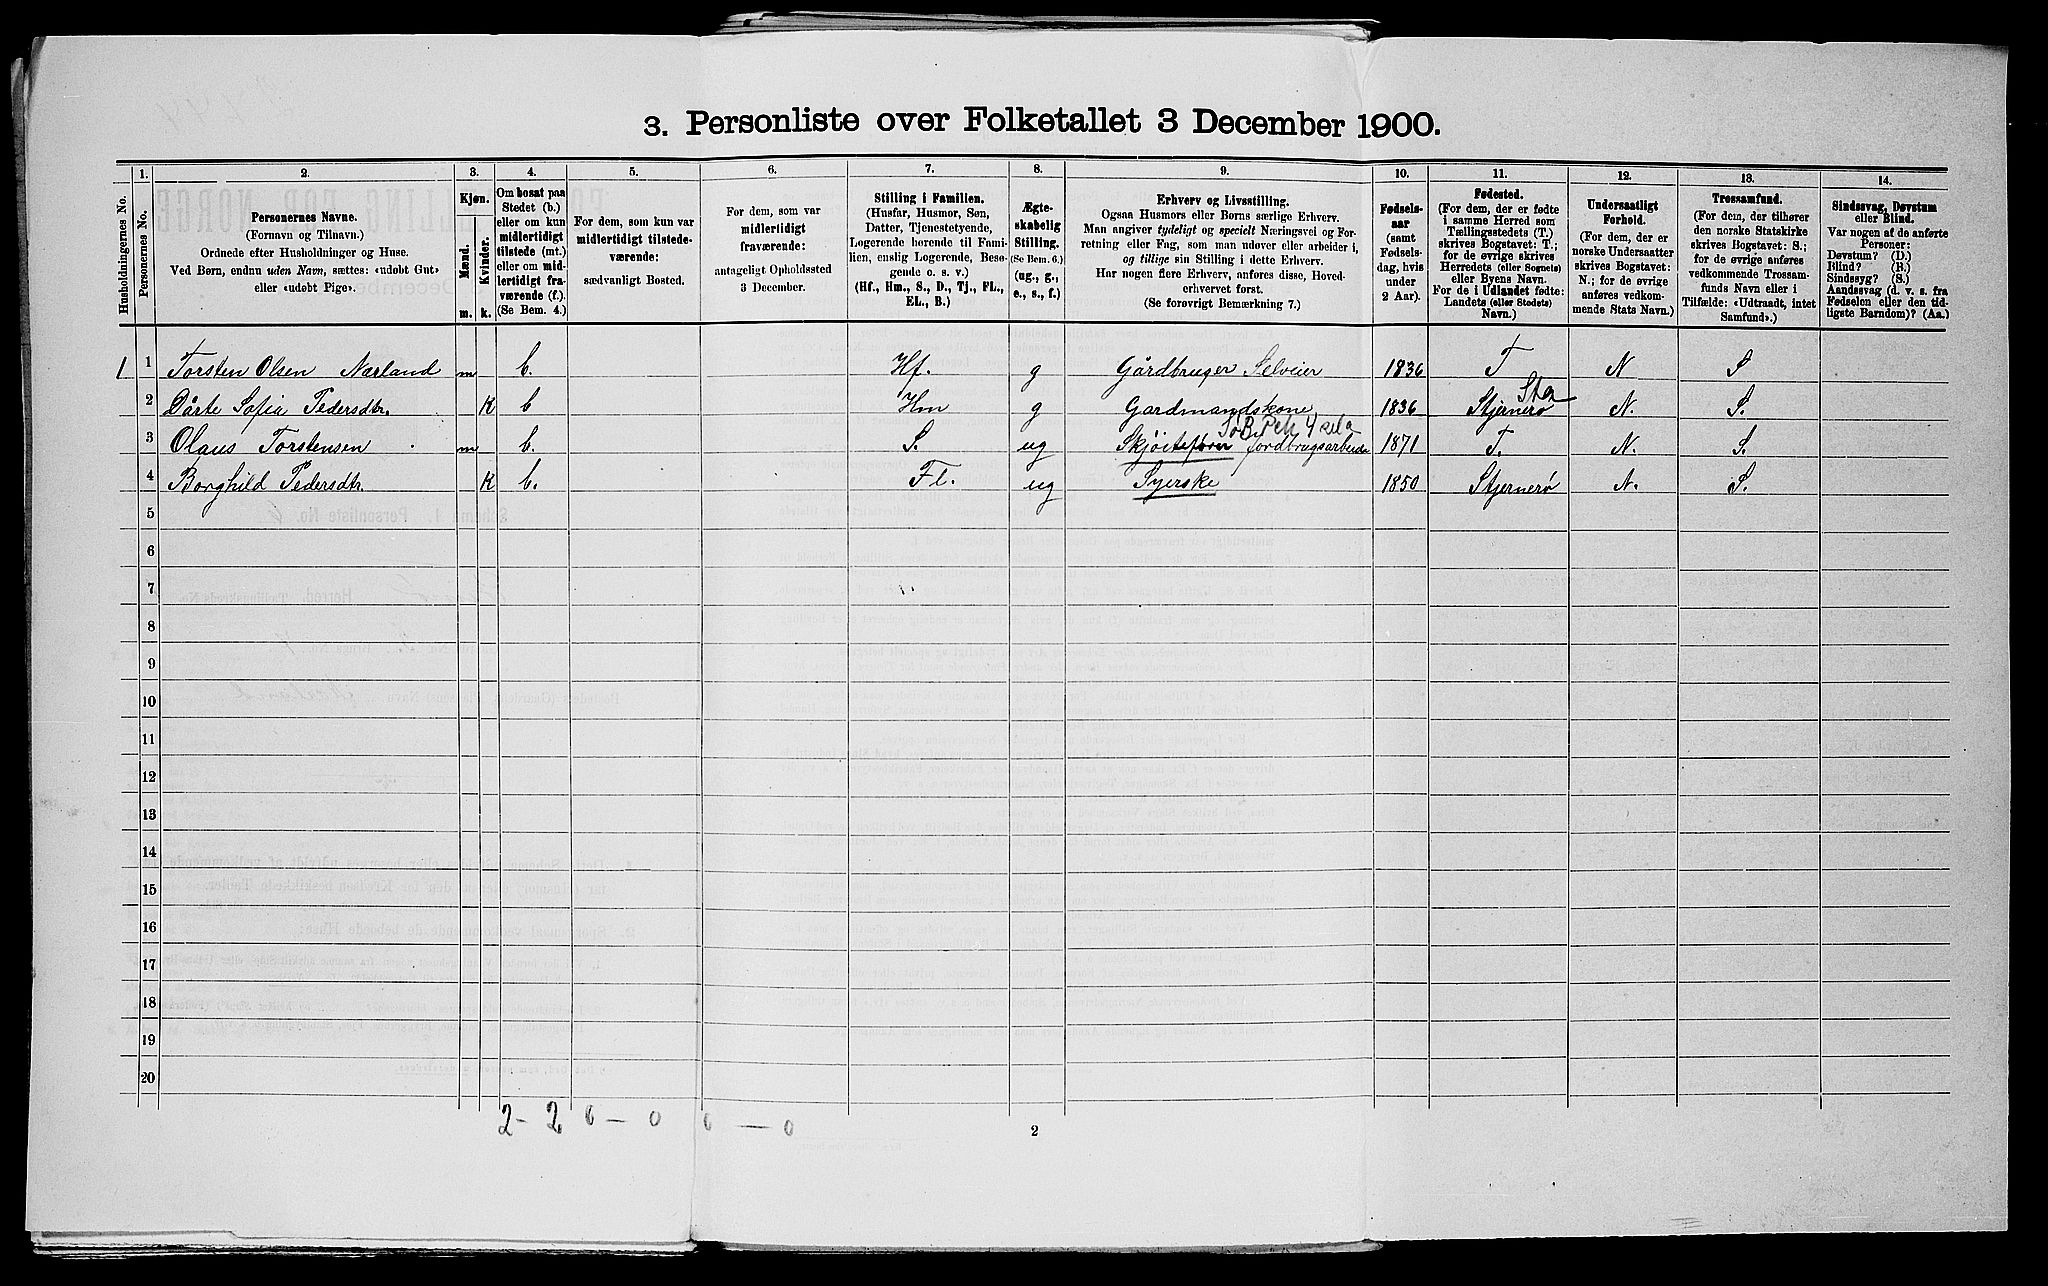 3. Personliste over Folketallet 3 December 1900.
Husholdningernes No.
1.
Personernes No.
2.
Personernes Navne.
(Fornavn og Tilnavn.)
Ordnede efter Husholdninger og Huse.
Ved Børn, endnu uden Navn, sættes: «udøbt Gut»
eller «udøbt Pige».
3.
Kjøn.
Mænd.
Kvinder.
m. k.
4.
Om bosat paa
Stedet (b.)
eller om kun
midlertidigt
tilstede (mt.)
eller om mid-
lertidigt fra-
værende (f.).
(Se Bem. 4.)
5.
For dem, som kun var
midlertidigt tilstede-
værende:
sædvanligt Bosted.
6.
For dem, som var
midlertidigt
fraværende:
antageligt Opholdssted
3 December.
7.
Stilling i Familien.
(Husfar, Husmor, Søn,
Datter, Tjenestetyende,
Logerende hørende til Fami-
lien, enslig Logerende, Besø-
gende o. s. v.)
(Hf., Hm., S., D., Tj., FL.,
EL., B.)
8.
Ægte-
skabelig
Stilling.
(Se Bem. 6.)
(ug., g.,
e., s., f.)
9.
Erhverv og Livsstilling.
Ogsaa Husmors eller Børns særlige Erhverv.
Man angiver tydeligt og specielt Næringsvei og For-
retning eller Fag, som man udøver eller arbeider i,
og tillige sin Stilling i dette Erhverv.
Har nogen flere Erhverv, anføres disse, Hoved-
erhvervet først.
(Se forøvrigt Bemærkning 7.)
10.
Fødsels-
aar
(samt
Fødsels-
dag, hvis
under
2 Aar).
11.
Fødested.
(For dem, der er fødte
i samme Herred som
Tællingsstedets (T.)
skrives Bogstavet: T.;
for de øvrige skrives
Herredets (eller Sognets)
eller Byens Navn.
For de i Udlandet fødte:
Landets (eller Stedets)
Navn.)
12.
Undersaatligt
Forhold.
(For dem, der er
norske Undersaatter
skrives Bogstavet:
N.; for de øvrige
anføres vedkom-
mende Stats Navn.)
13.
Trossamfund.
(For dem, der tilhører
den norske Statskirke
skrives Bogstav: S.;
for de øvrige anføres
vedkommende Trossam-
funds Navn eller i
Tilfælde: «Udtraadt, intet
Samfund».)
14.
Sindssvag, Døvstum
eller Blind.
Var nogen af de anførte
Personer:
Døvstum? (D.)
Blind? (B.)
Sindssyg? (S.)
Aandssvag (d. v. s. fra
Fødselen eller den tid-
ligste Barndom)? (Aa.)
1 1 Torsten Olsen Nærland m b. Hf. g Gårdbruger Selveier 1836 T N S
2 Dårte Sofia Pedersdtr. K b Hm g Gardmandskone 1836 Stjernerø N. S.
3 Olaus Torstensen m b. S. ug Jordbrugsarbeide 1871 T. N. S.
4 Borghild Pedersdtr. K b. Fl. ug Syerske 1850 Stjernerø N. S.
5
6
7
8
9
10
11
12
13
14
15
16
17
18
19
20
2 - 2 0 - 0 0 - 0
2